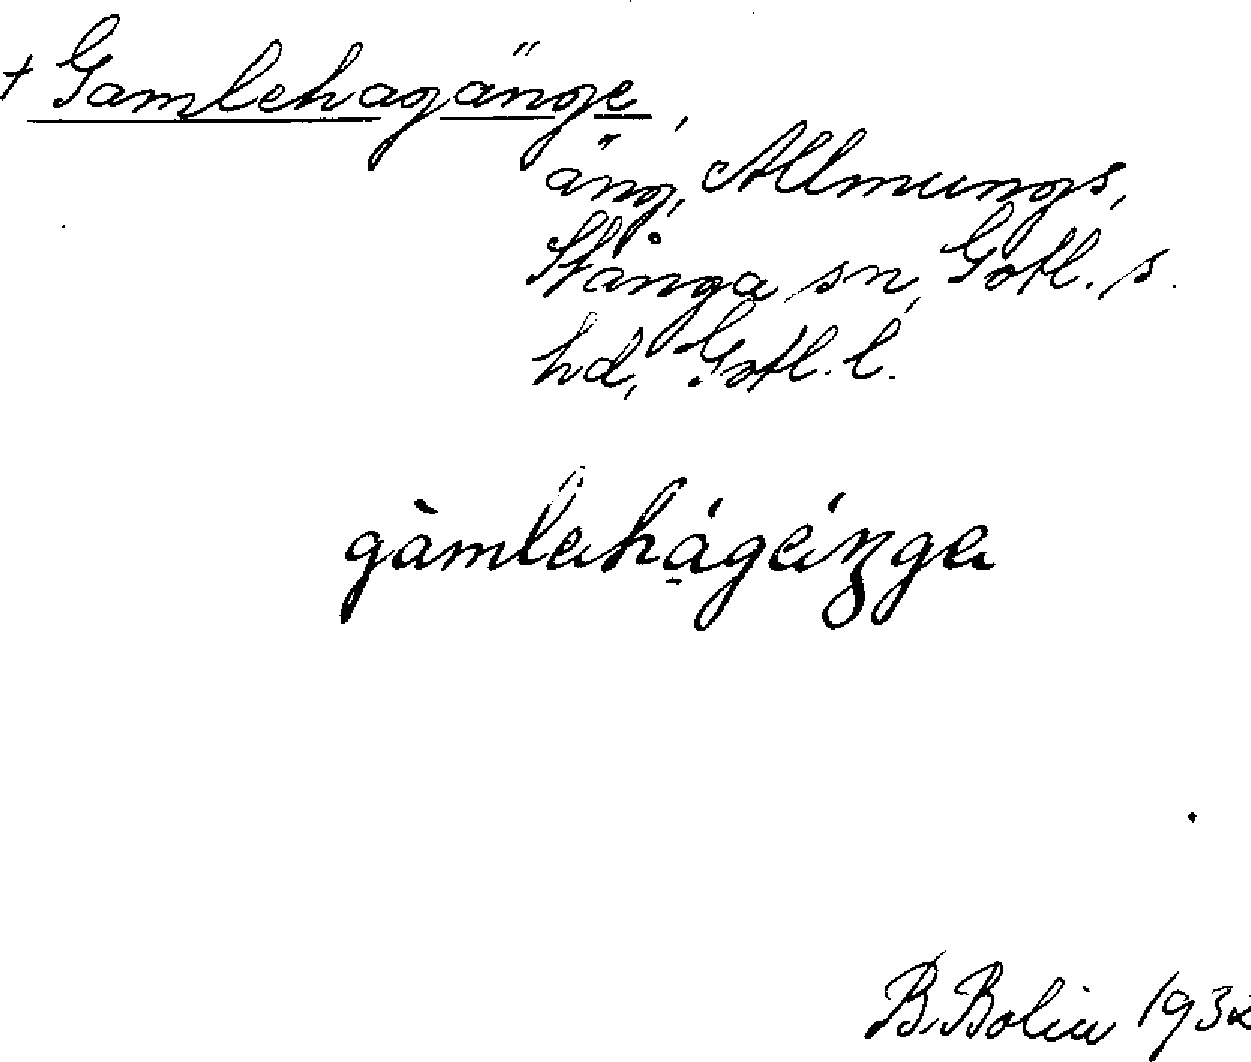 + Gamlehagänge,
äng, Allmungs,
Stånga sn, Gotl. s.
hd, Gotl. l.
gàmlehágéŋge
B. Bolin 1932